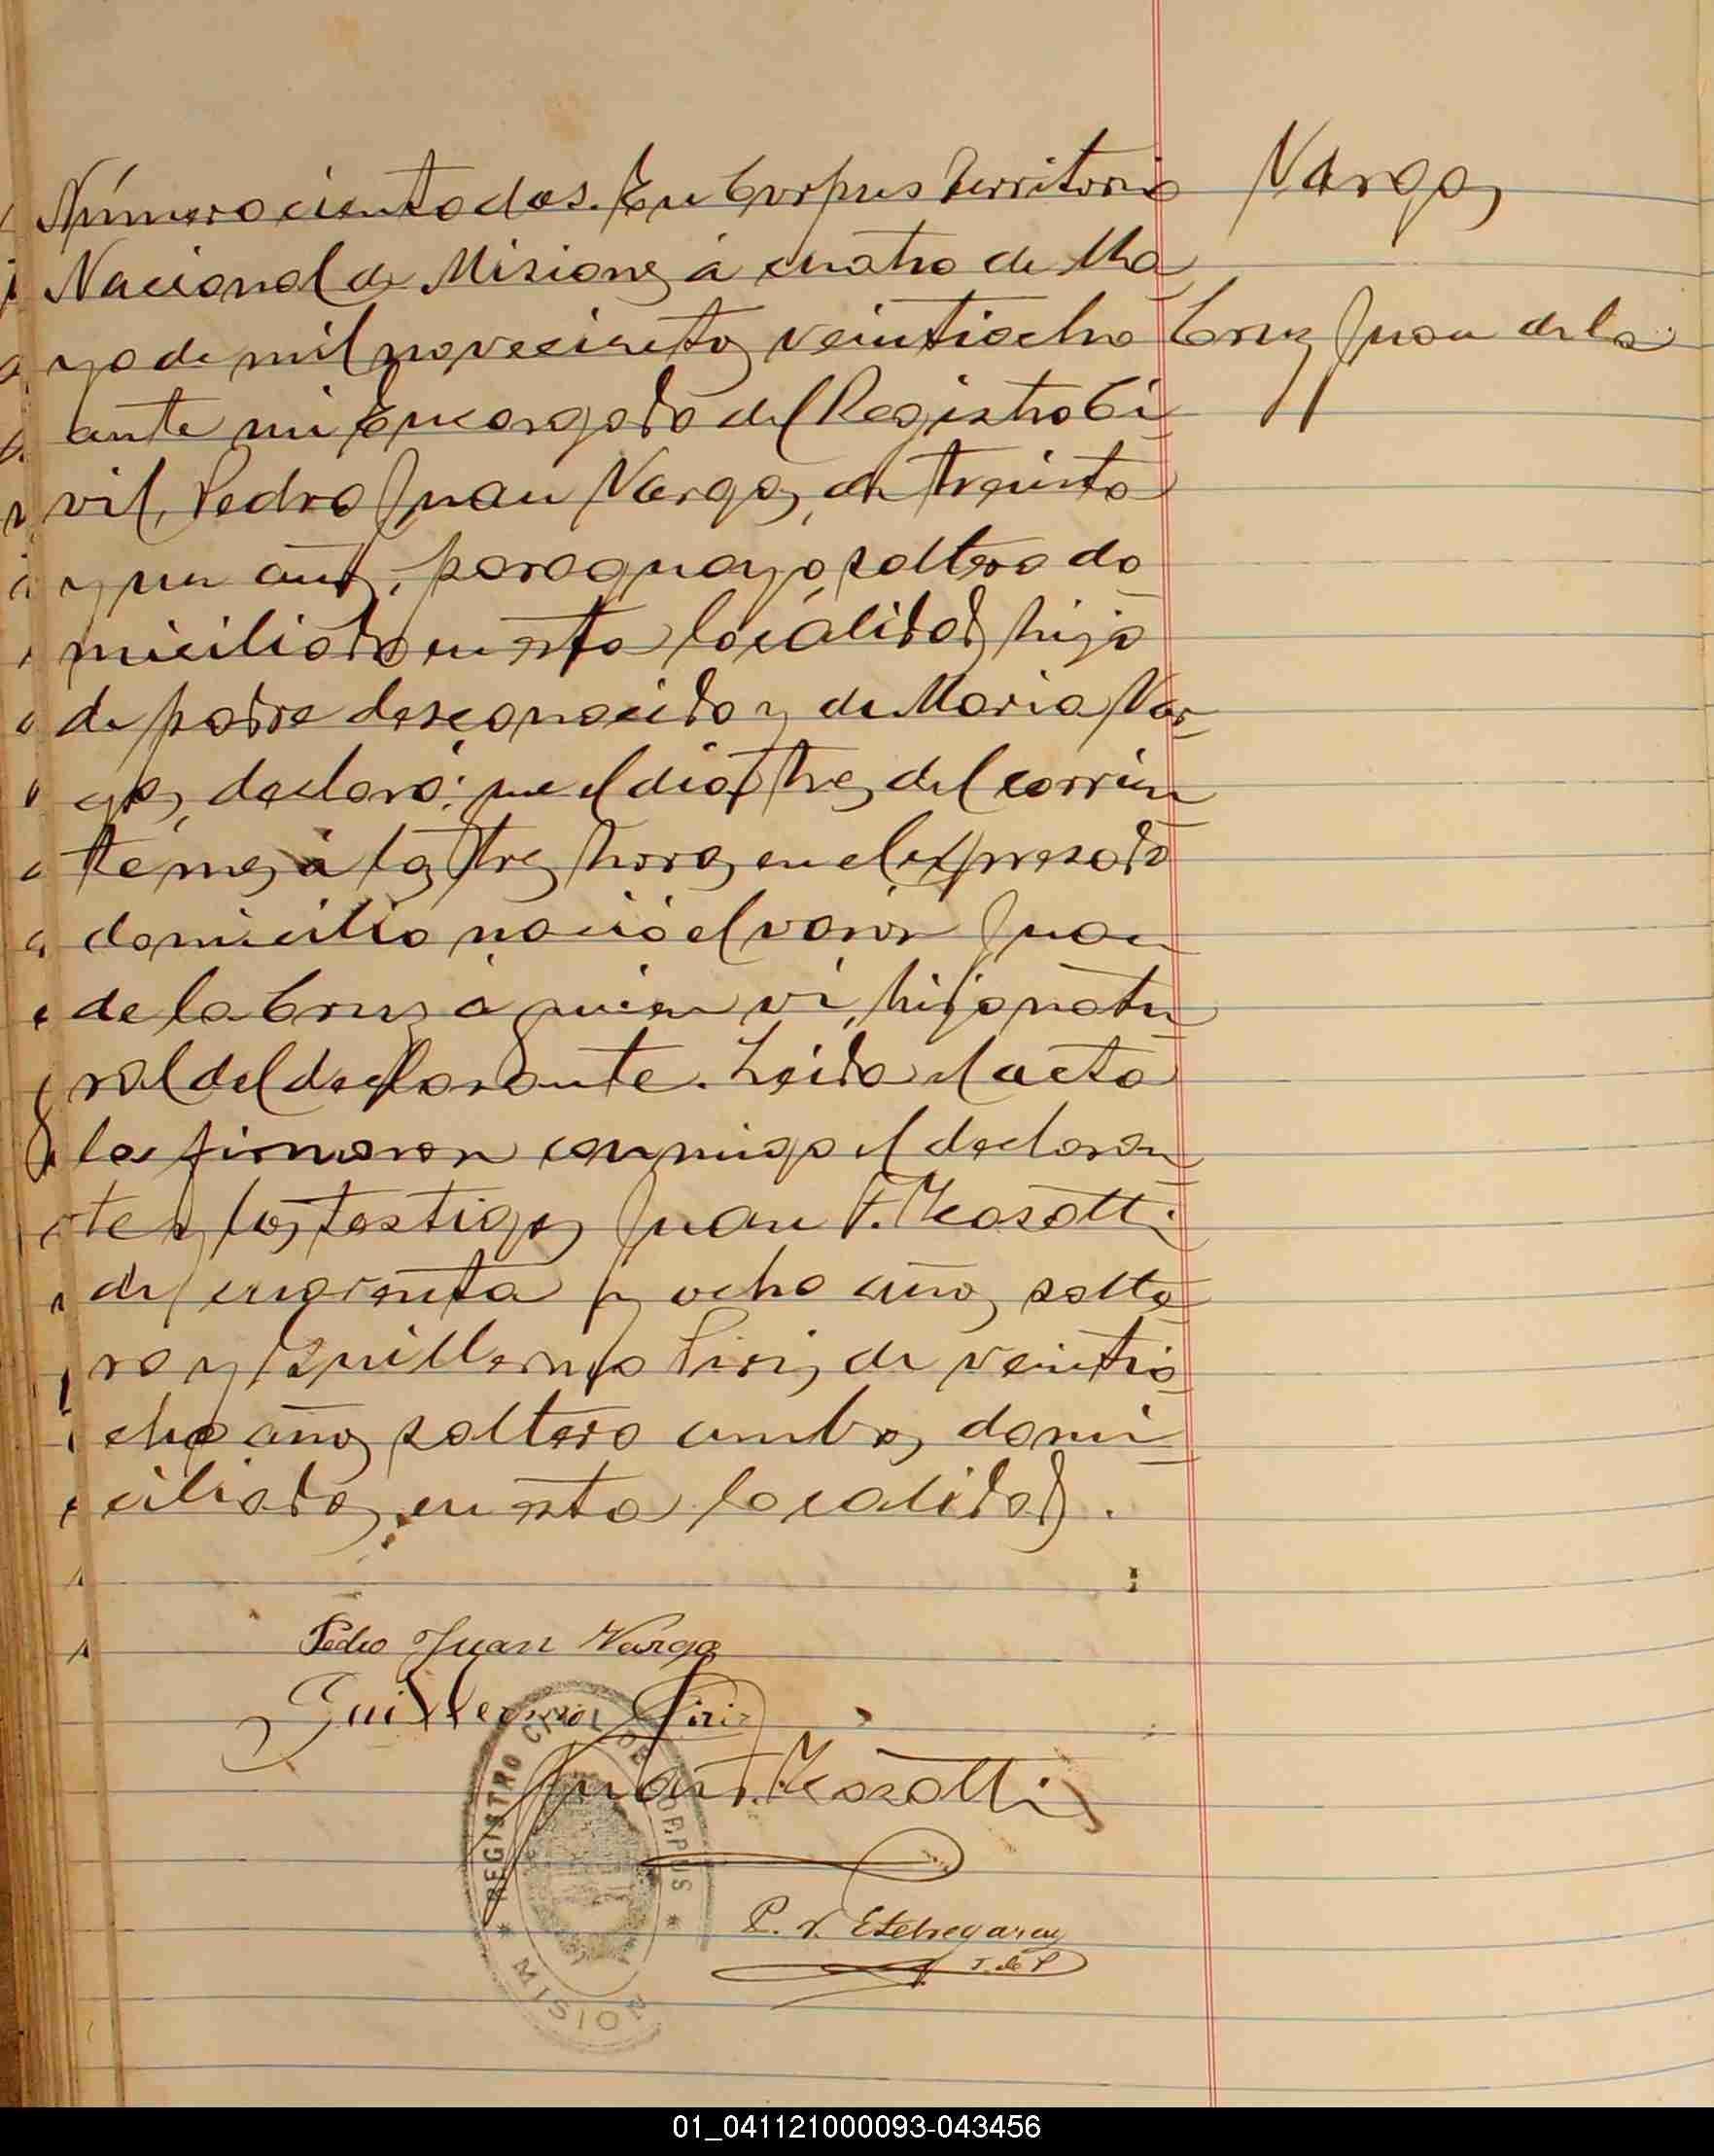 Número ciento dos. En Corpus Territorio
Vargas
Nacional de Misiones á cuatro de Ma
yo de mil novecientos veintiocho
Cruz Juan de la
ante mi Encargado del Registro Ci
vil, Pedro Juan Vargas, de treinta
y un años, paraguayo, soltero do
miciliado en esta localidad, hijo
de padre desconocido y de Maria Var
gas, declaró: que el dia tres del corrien
te mes á las tres horas en el expresado
domicilio nació el varón Juan
de la Cruz á quien vi, hijo natu
ral del declarante. Leida el acta
la firmaron conmigo el declaran
te y los testigos Juan F.
de cuarenta y ocho años, solte
ro y Guillermo Piris, de veintio
cho años, soltero ambos domi
ciliados en esta localidad.
Pedro Juan Vargas
Guillermo Piris
Juan F.
P. V. Etchegaray
J. de P
REGISTRO CIVIL DE CORPUS
MISIONES
01_041121000093-043456